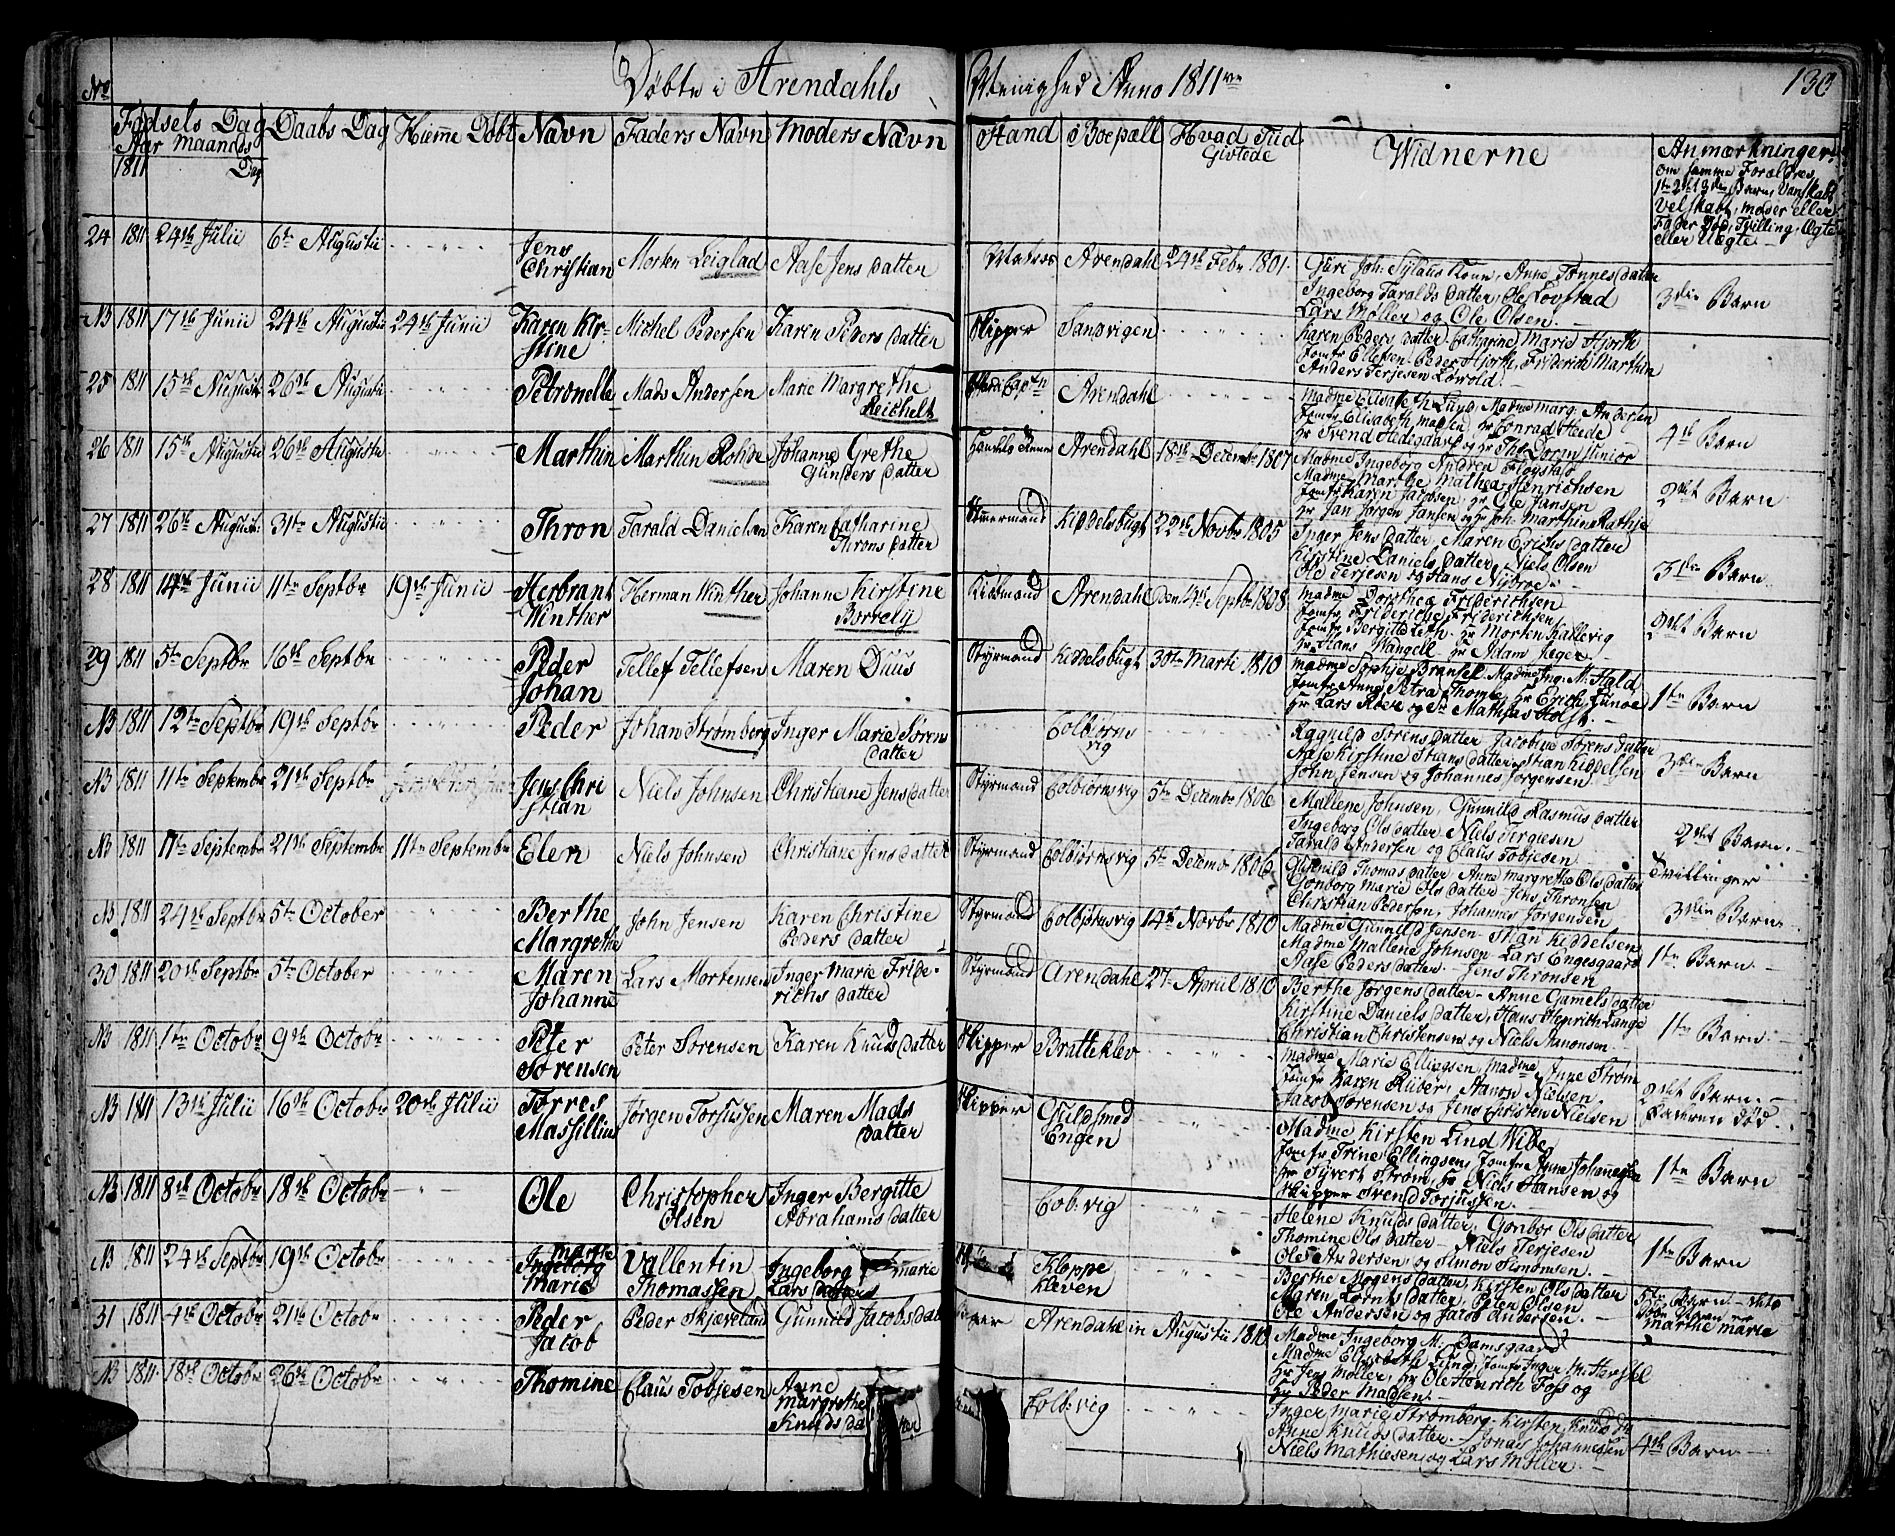 Døbte i Arendahls Menighed Anno 1811
130
No
Fødselsdag Aar maaneds Dag 1811
Daabs Dag
Hiemme Døbt
Navn
Faders Navn
Moders Navn
Stand
Boepæll
Hvad Tiid Givtede
Widnerne
Anmærkninger
om samme Forældres
1te 2det 3die Barn, Vanskabt
Velskabt, moder eller
Fader Død, Tvilling, Ægte
eller Uægte
24 1811 24de Julii 6te Augusti Jens Christian Morten Leiglad Aase Jens datter Matros Arendahl 24de Febr 1801.
Ingeborg Taralds datter, Ole Løvstad
Lars Møller og Ole Olsen.
3die Barn
NB 1811 17de Junii 24de Augusti 24de Junii Karen Kirstine Michel Pedersen Karen Peders datter Skipper Sandvigen
Karen Peders datter Catharine Marie Hjorth
Jomfr Ellefsen Peder Hjorth, Friderich Marthin
Anders Terjesen Løvold
25 1811 15de Augusti 26de Augusti Petronelle Mads Andersen Marie Margrethe Reichelt Arendahl
Madme Elisabeth Lund, Madme Marg: Andersen
Jomfr Elisabeth Madsen, hr Conrad Heide
hr Svend Hedegaard og hr Ths Doran Junior
4de Barn
26 1811 15de Augusti 26de Augusti Marthin Marthin Rohde Johanne Grethe Gunders datter Arendahl 18de Decembr 1807
Madme Ingeborg Andrea Fløystad
Madme Marthe Mathea Henrichsen
Jomfr Karen Jacobsen, hr Ole Jansen
hr Jan Jørgen Jansen og hr Joh: Marthin Rathje
2det Barn
27 1811 26de August 31te Augusti Thron Tarald Danielsen Karen Catharine Throns datter Kiddelsbugt 22de Novbr 1805
Inger Jens datter, Maren Erichs datter
Kirstine Daniels datter, Niels Olsen
Ole Terjesen og Hans Nybroe
3die Barn
28 1811 14de Junii 11te Septbr 19de Junii Herbrant Winther Herman Winther Johanne Kirstine Borrely Kiøbmand Arendahl den 14de Septbr 1808
Madme Dorothea Friderichsen
Jomfr Friderichs Friderichsen
Jomfr Bergitte Leth, hr Morten Kallevig
hr Hans Wangell hr Adam Jeger
2det Barn
29 1811 5te Septbr 16de Septbr Peder Johan Tellef Tellefsen Maren Duus Styrmand Kiddelsbugt 30te Marti 1810
Madme Sophie Bransell Madme Ing: M: Hald
Jomfr Anne Petra Thomle, hr Erich Tunoe
hr Lars Roer og hr Mathias Holst
1te Barn
NB 1811 12te Septbr 19de Septbr Peder Johan Strømberg Inger Marie Sørens datter Colbiørnsvig
Ragnild Sørens datter Jacobine Sørens datter
Aase Kirstine Stians datter Stian Kiddelsen
John Jensen og Johannes Jørgensen
3die Barn
NB 1811 11te Septembr 21de Septbr Jens Christian Niels Johnsen Christiane Jens datter Styrmand Colbiørnsvig 5te Decembr 1806
Mallene Johnsen, Gunnild Rasmus datter
Ingeborg Ols datter Niels Tergiesen
Tarald Andersen og Claus Tobjesen
2det Barn
Tvillinger
NB 1811 11te Septembr 21de Septembr 11te Septembr Elen Niels Johnsen Christiane Jens datter Styrmand Colbiørnsvig 5te Decembr 1806
Gunnild Thomas datter Anne Margrethe Ols datter
Gonborg Marie Ols datter Jens Thronsen
Christian Pedersen, Johannes Jørgensen
3die Barn
NB 1811 24de Septbr 5te October Berthe Margrethe John Jensen Karen Christine Peders datter Styrmand Colbiørnsvig 14de Novbr 1810
Madme Gunnild Jensen Stian Kiddelsen
Madme Mallene Johnsen Lars Engesgaard
Aase Peders datter Jens Thronsen
1te Barn
30 1811 20de Septbr 5te October Maren Johanne Lars Mortensen Inger Marie Friderichs datter Styrmand Arendahl 27de April 1810
Berthe Jørgens datter Anne Gamels datter
Kirstine Daniels datter, Hans Henrich Lange
Christian Christensen og Niels Aanonsen
1te Barn
NB 1811 1te October 9de Octobr Peter Sørensen Peter Sørensen Karen Knuds datter Skipper Bratteklev
Madme Marie Ellingsen, Madme Anne Strøm
Jomfr Karen Ruber, Aanon Nielsen
Jacob Sørensen og Jens Christen Nielsen
2det Barn
Faderen død
NB 1811 13de Julii 16de Octobr 20de Julii Torres Massillius Jørgen Torjussen Maren Mads datter Skipper Guldsmed Engen
Madme Kirsten Lind Wibe
Jomfr Trine Ellingsen, Jomfru Anne Johannesen
hr Syvert Strøm, hr Niels Hansen og
Skipper Svend Torjussen
1te Barn
NB 1811 8de Octobr 18de Octobr Ole Christopher Olsen Inger Bergitte Abrahams datter Colb:vig
Helene Knuds datter, Gonbor Ols datter
Thomine Ols datter Niels Terjesen
Ole Andersen og Simon Simonsen
1te Barn
NB 1811 24de Septbr 19de Octobr Marthe Marie Vallentin Thomassen Ingeborg Marie Lars datter Kloppekleven
Berthe Mogens datter, Kirsten Ols datter
Maren Lorents datter, Peter Olsen
Ole Andersen og Jacob Andersen
5te Barn
marthe marie
31 1811 4de October 21de Octobr Peder Jacob Peder Skjæveland Gunnild Jacobs dat Arendahl in Augusti 1810
Madme Ingeborg M: Damsgaard
Madme Elisabeth Lund, Jomfr Inger M: Herstel
hr Jens Møller, hr Ole Henrich Foss og
hr Peder Madsen
NB 1811 18de Octobr 26de Octobr Thomine Claus Tobjesen Anne Margrethe Knuds da Colb:vig
Inger Marie Strømberg, Kirsten Knuds dr
Anne Knuds datter Jonas Johannesen
Niels Mathiesen og Lars Møller
4de Barn